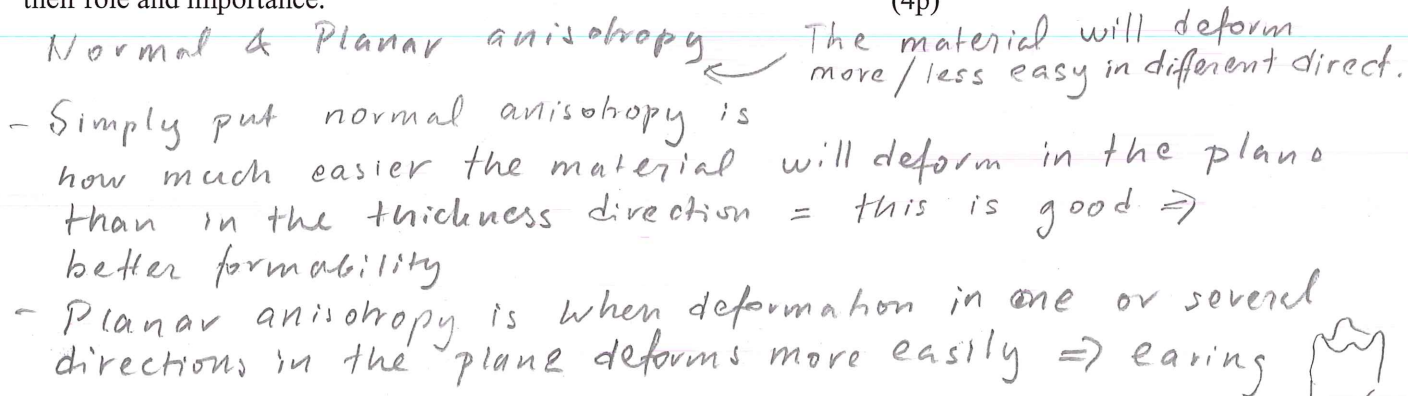 their role and importance. (4p)
Normal & Planar anisotropy ← The material will deform
more/less easy in different direct.
- Simply put normal anisotropy is
how much easier the material will deform in the plane
than in the thickness direction = this is good ⇒
better formability
- Planar anisotropy is when deformation in one or several
directions in the plane deforms more easily ⇒ earing